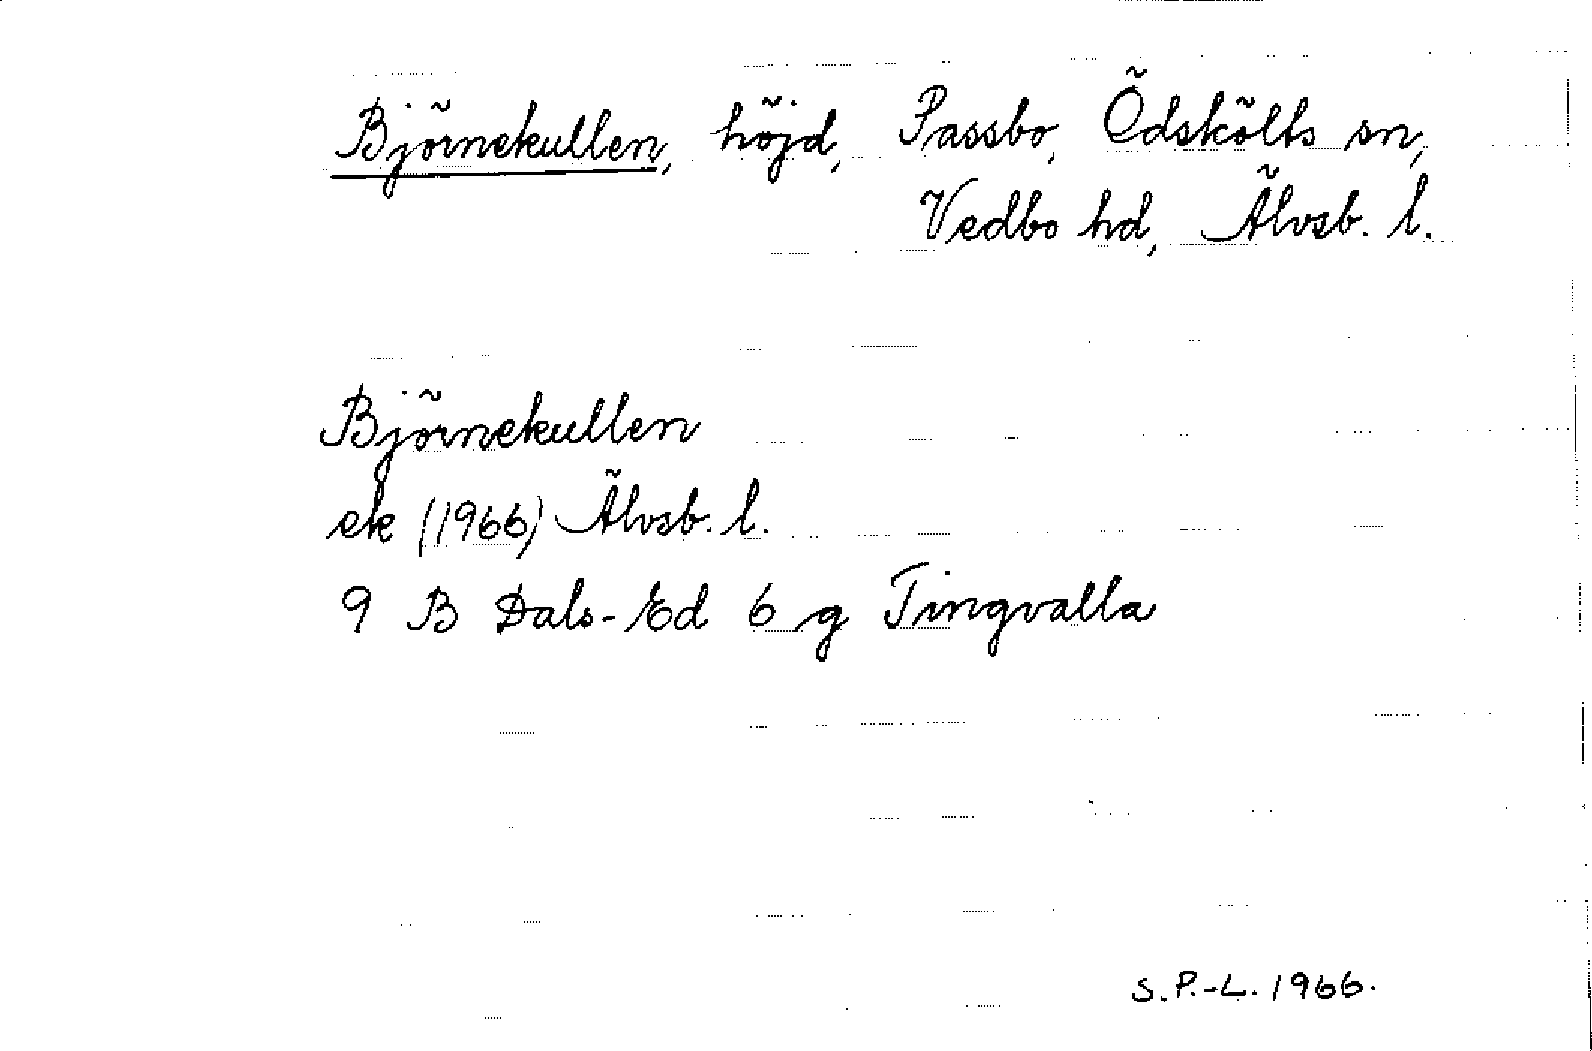 Björnekullen, höjd, Passbo, Ödskölts sn,
Vedbo hd, Älvsb. l.
Björnekullen
ek (1966) Älvsb. l.
9 B Dals-Ed 6 g Tingvalla
S.P.-L. 1966.